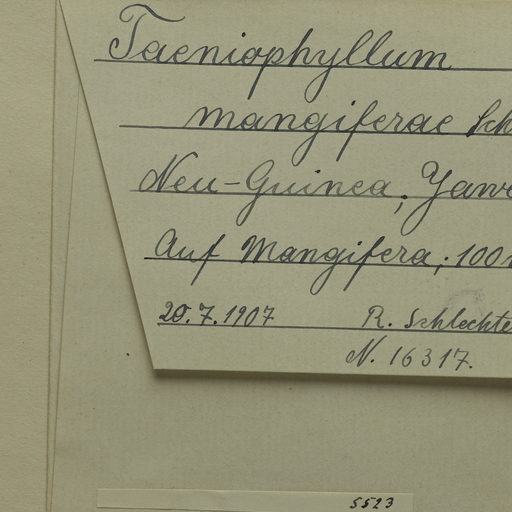 Taeniophyllum
mangiferae Sch
Neu-Guinea; Jawe
Auf Mangifera; 100
20.7.1907 R. Schlechte
N. 16317.
5523